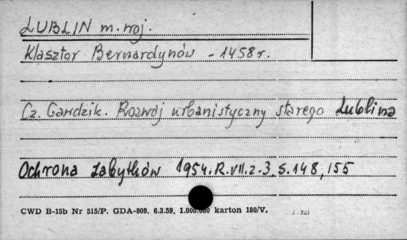 LUBLIN m. woj.
Klasztor Bernardynów - 1458 r.
Cz. Gawdzik. Rozwój urbanistyczny starego Lublina
Ochrona Zabytków 1954. R. VII. z. 3, S. 148, 155
CWD B-15b Nr 515/P. GDA-809. 6.3.59, 1.000.000 karton 180/V.